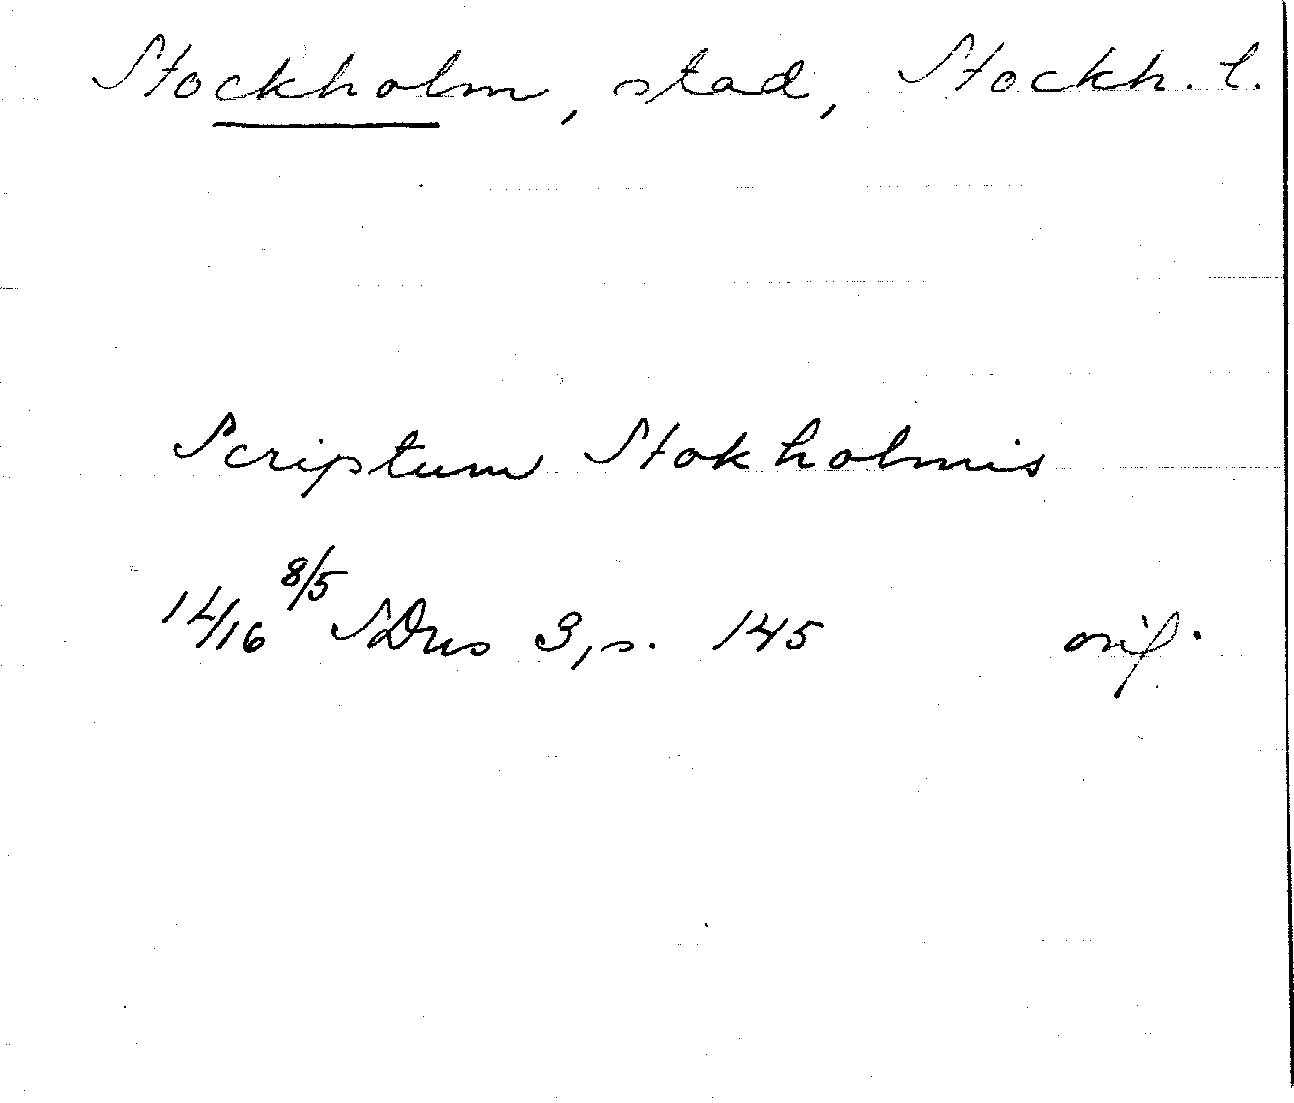 Stockholm, stad, Stockh. l.
Scriptum Stokholmis
14/16 8/5 SDns 3, s. 145 orig.